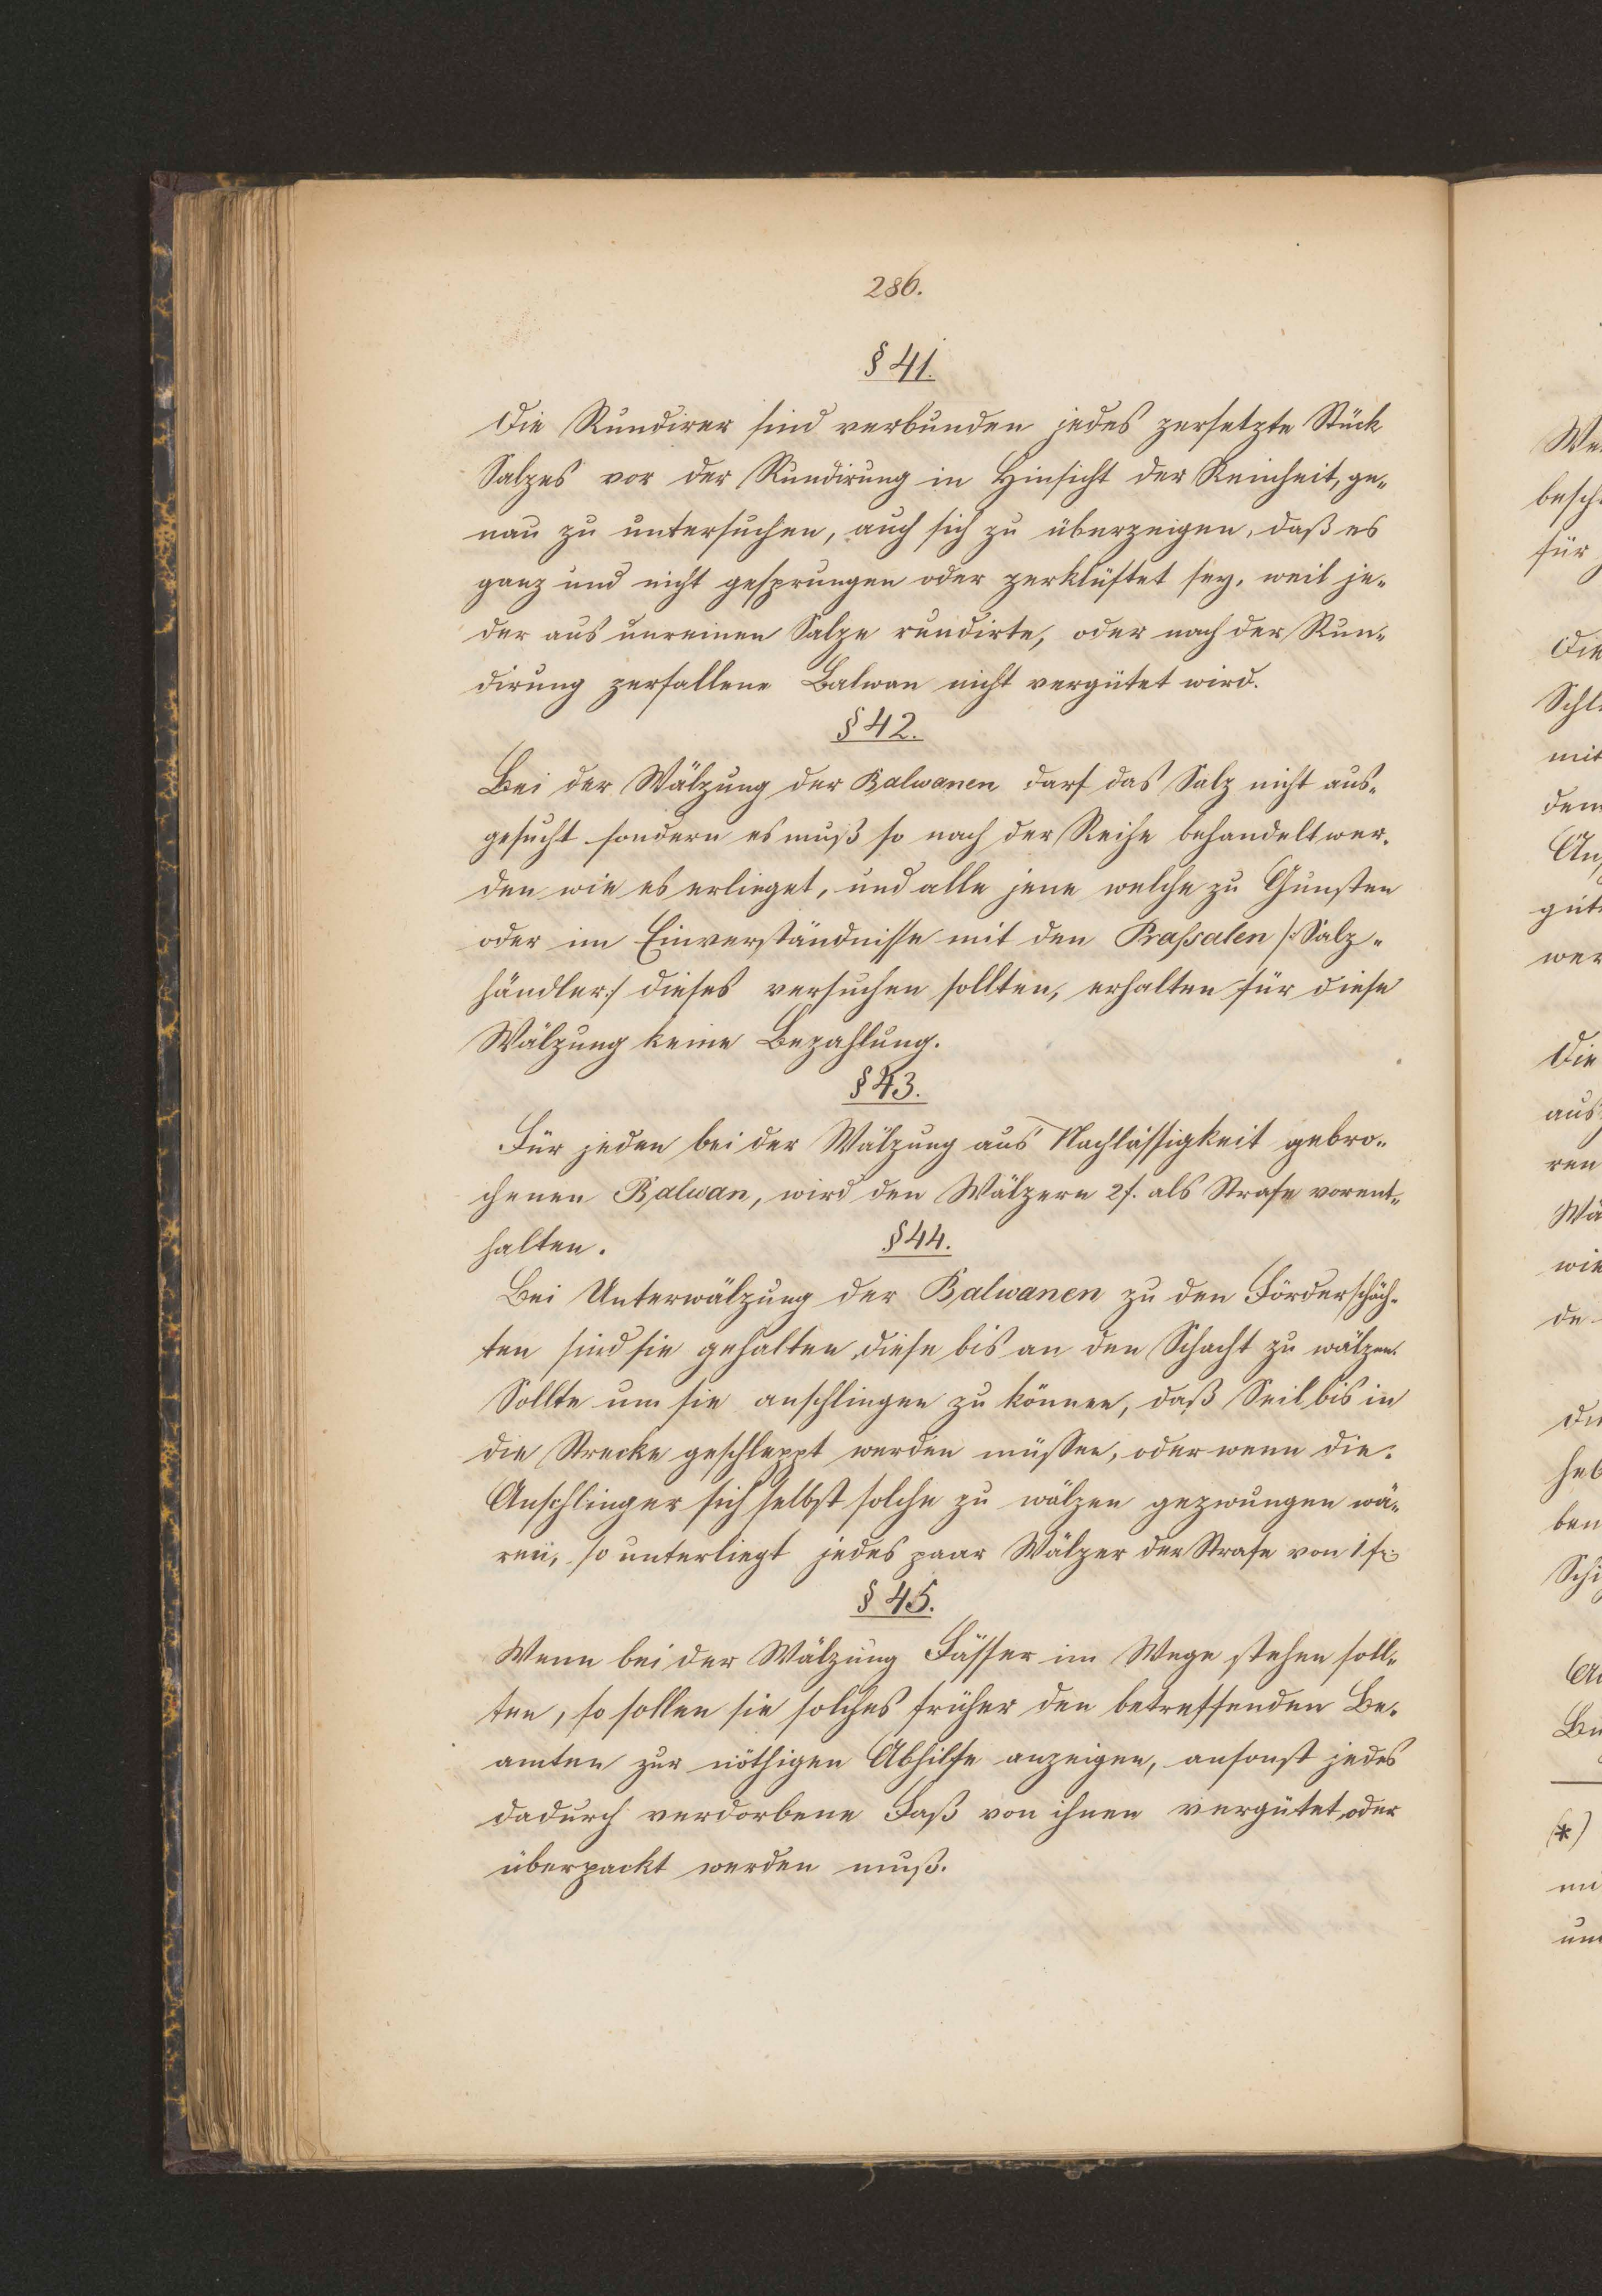 286.
§ 41.
Die Rundirer sind verbunden jedes zersetzte Stück
Salzes vor der Rundirung in Hinsicht der Reinheit, ge-
nau zu untersuchen, auch sich zu überzeigen, daß es
ganz und nicht gesprungen oder zerklüftet sey, weil je-
der aus unreinen Salze rundirte, oder nach der Run-
dirung zerfallene Balwan nicht vergütet wird.
§ 42.
Bei der Wälzung der Balwanen darf das Salz nicht aus-
gesucht sondern es muß so nach der Reihe behandelt wer-
den wie es erlieget, und alle jene welche zu Gunsten
oder im Einverständnisse mit den Praßsalen /: Salz-
händler :/ dieses versuchen sollten, erhalten für diese
Wälzung keine Bezahlung.
§ 43.
Für jeden bei der Wälzung aus Nachlässigkeit gebro-
chenen Balwan, wird den Wälzern 2 f. als Strafe vorent-
halten.
§ 44.
Bei Unterwälzung der Balwanen zu den Förderschäch-
ten sind sie gehalten, diese bis an den Schacht zu wälzen.
Sollte um sie anschlingen zu können, daß Seil bis in
die Strecke geschleppt werden müssen, oder wenn die
Anschlinger sich selbst solche zu wälzen gezwungen wä-
ren, so unterliegt jedes paar Wälzer der Strafe von 1 fr:
§ 45.
Wenn bei der Wälzung Fässer im Wege stehen soll-
ten, so sollen sie solches früher den betreffenden Be-
amten zur nöthigen Abhilfe anzeigen, ansonst jedes
dadurch verdorbene Faß von ihnen vergütet, oder
überpackt werden muß.